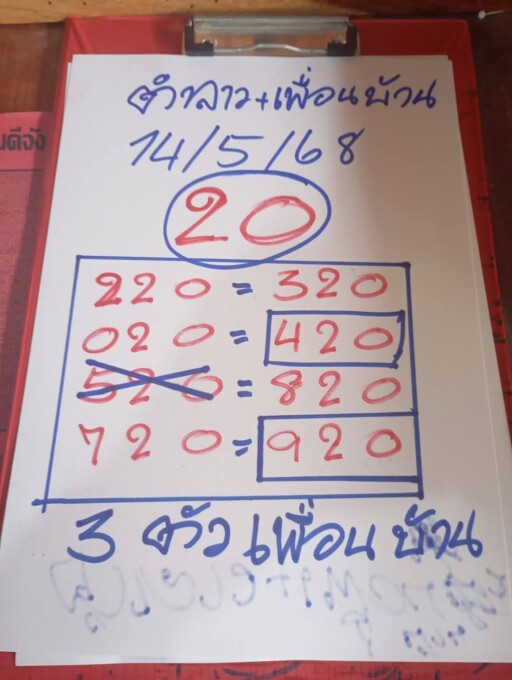 ตำลาว+เพื่อนบ้าน
14/5/68
20
220 = 320
020 = 420
520 = 820
720 = 920
3 ตัว เพื่อนบ้าน